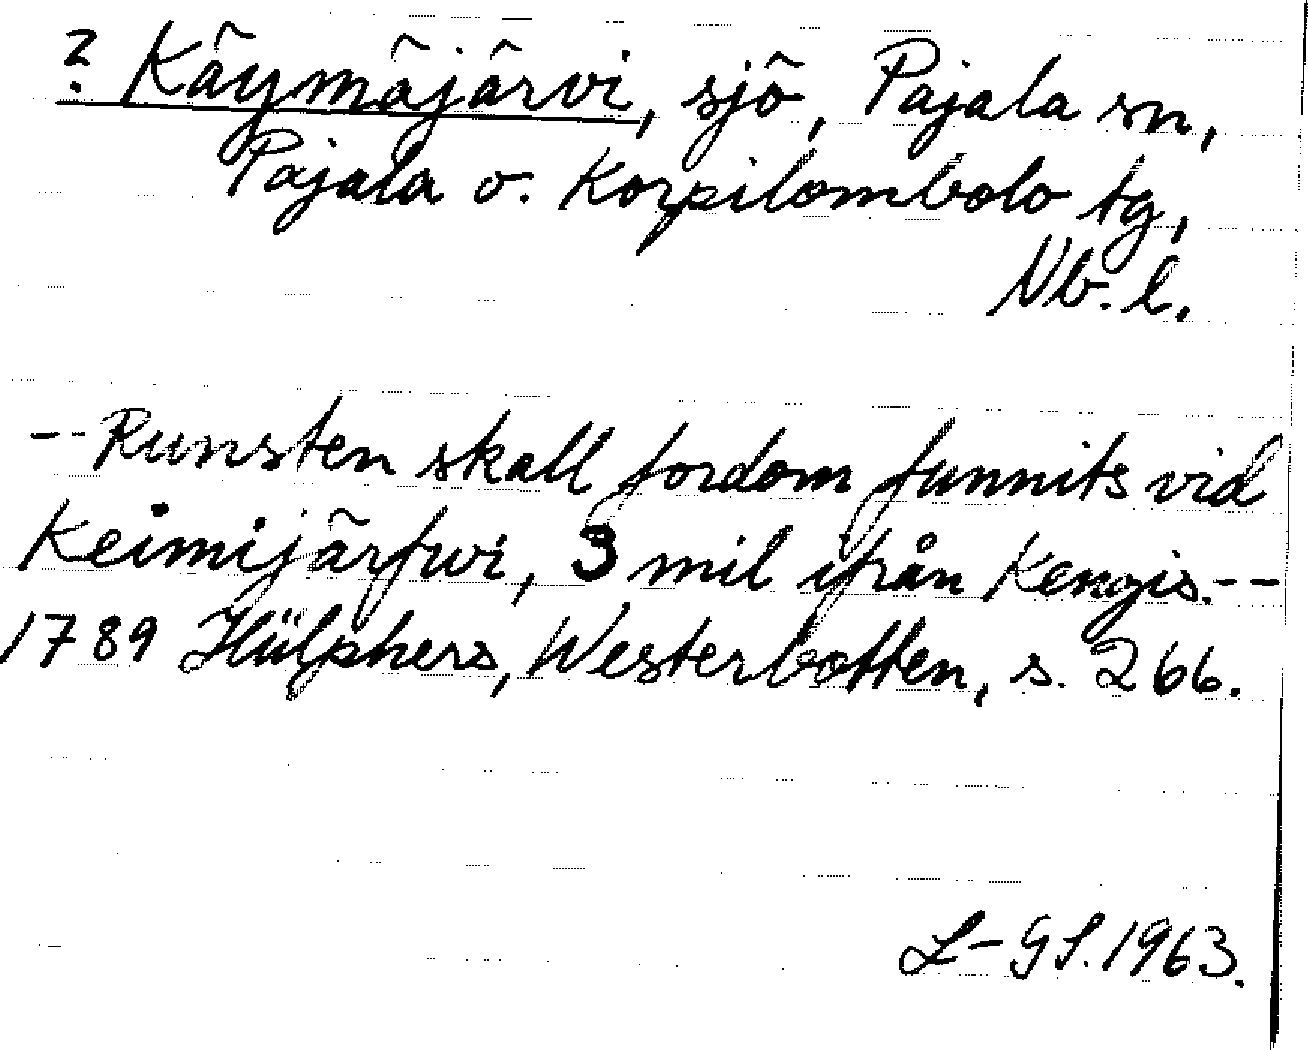 ? Käymäjärvi, sjö, Pajala sn,
Pajala o. Korpilombolo tg,
Nb. l.
-- Runsten skall fordom funnits vid
Keimijärfwi, 3 mil ifrån Kengis. --
1789 Hülphers, Westerbotten, s. 266.
L-GL. 1963.